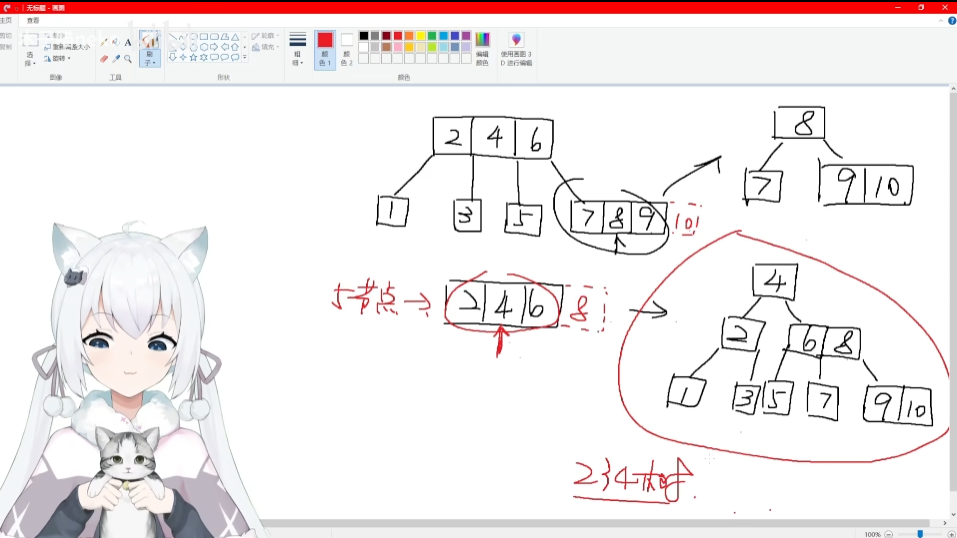 无标题 - 画图
主页 查看
剪切
复制
选择
重新调整大小
旋转
图像
A
工具
刷子
形状
轮廓
填充
粗细
颜色 1
颜色 2
颜色
编辑颜色
使用画图 3D 进行编辑
2 4 6
1 3 5 7 8 9 10
8
7 9 10
5节点 → 2 4 6 8
4
2 6 8
1 3 5 7 9 10
234树
100%